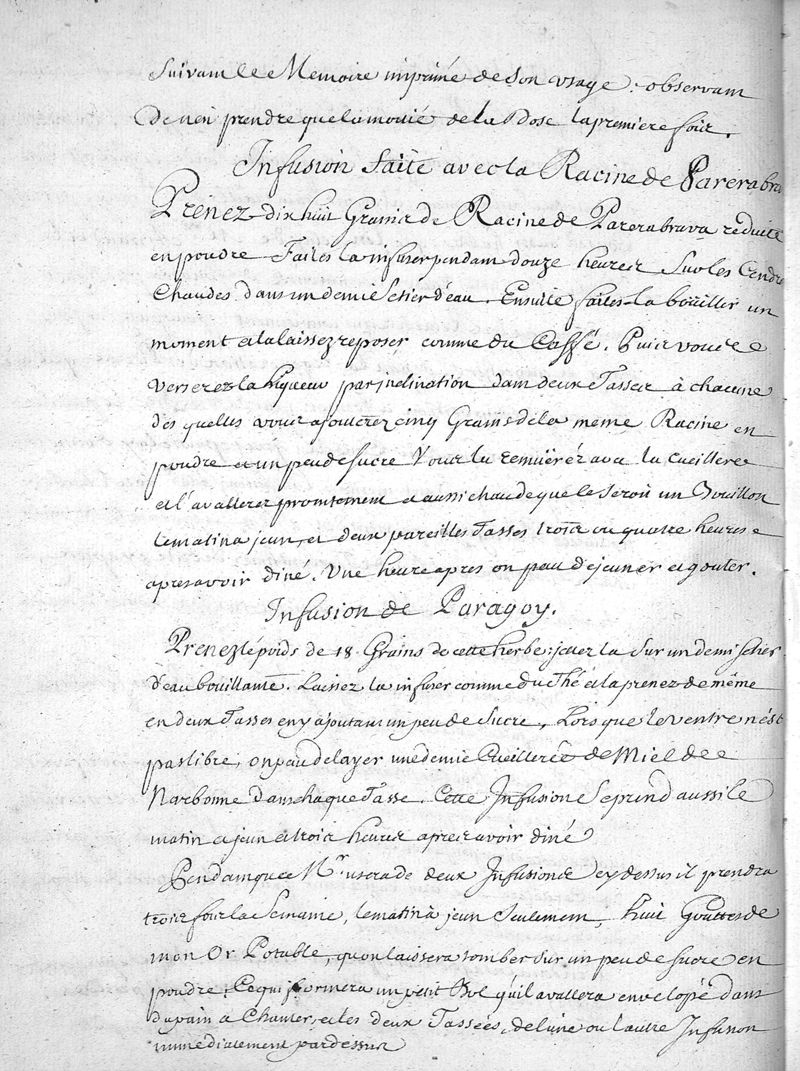 Suivant le Memoire imprimé de son usage : observant
De n'en prendre que la moitié de la Dose la premiere fois.
Infusion faite avec la Racine de Parerabra
Prenez dix huit Grains de Racine de Parerabrava reduite
en poudre Faites la infuser pendant douze heures sur les Cendres
Chaudes dans un demi Setier d'eau. Ensuite faites la boüiller un
moment et la laissez reposer comme du Caffé. Puis vous de
verserez la liqueur par inclination dans deux Tasses à chacune
des quelles vous ajouterez cinq Grains de la meme Racine en
poudre et un peu de sucre Vous la remuëréz avec la cueillere
et l'avallerez promtement et aussi chaude que le seroit un Boüillon
le matin a jeun, et deux pareilles Tasses trois ou quatre heures
apres avoir diné. Une heure apres on peu dejeuner et gouter.
Infusion de Paragoy.
Prenez le poids de 18. Grains de cette herbe ; jettez la sur un demi setier
d'eau bouillante. Laissez la infuser comme du Thé et la prenez de même
en deux Tasses en y ajoutant un peu de Sucre, Lors que le ventre n'est
pas libre, on peu delayer une demie Cueillerée de Miel de
Narbonne dans chaque Tasse. Cette Infusion se prend aussi le
matin a jeun et trois heures apres avoir diné
Pendant que Mr. usera de deux Infusions cy dessus il prendra
trois fois la Semaine, le matin à jeun seulement, huit Gouttes de
mon Or Potable, qu'on laissera tomber sur un peu de sucre en
poudre ; Ce qui formera un petit Bol qu'il avallera envelopé dans
du pain a Chanter, et les deux Tassées, de l'une ou l'autre Infusion
immediatement par dessus